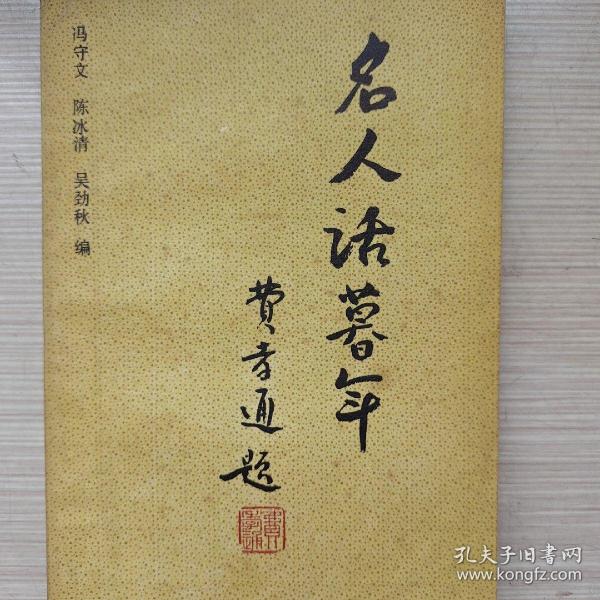 名人话暮年
费孝通题
冯守文 陈冰清 吴劲秋 编
孔夫子旧书网
www.kongfz.com